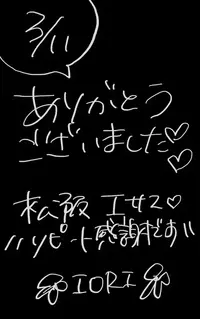 3/11
ありがとう
ございました♡♡
松阪 エサス♡
リピート感謝です!!
IORI